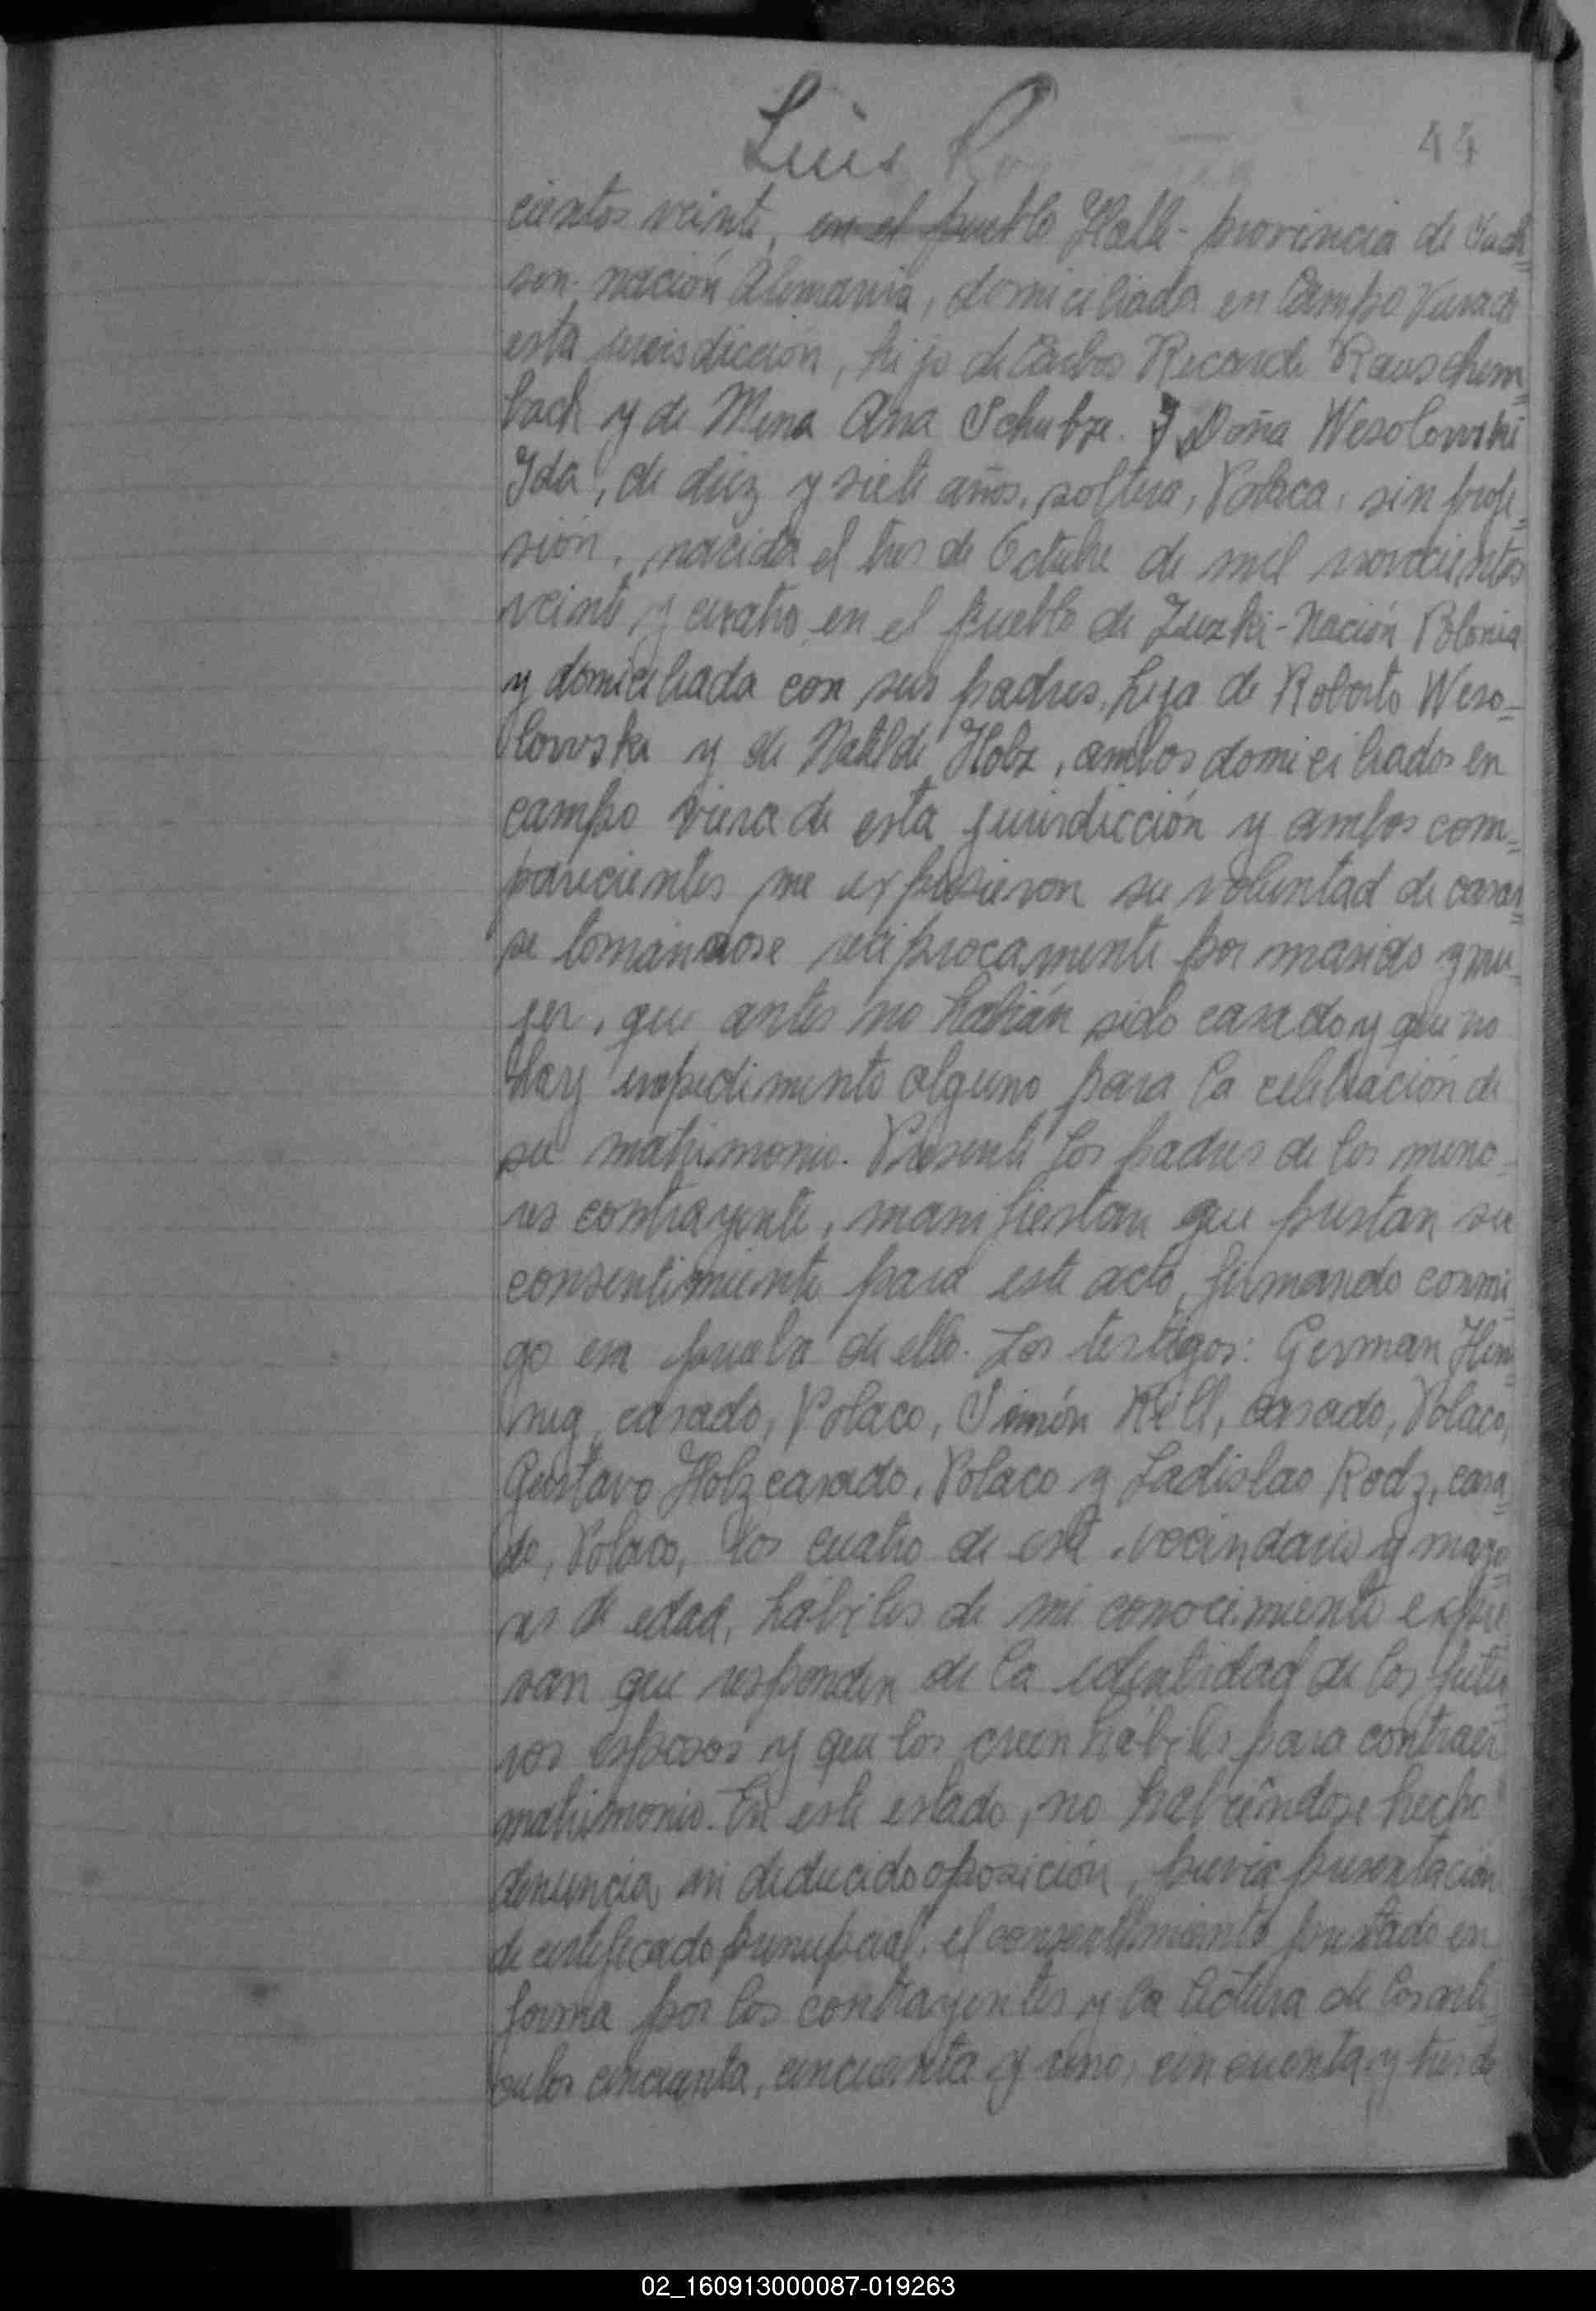 Luis
44
cientos veinte, en el pueblo Halle - provincia de Sach=
sen - nación Alemania, domiciliado en Campo Viera de
esta jurisdicción, hijo de Carlos Ricardo Rauschem=
bach y de Mina Ana Schubze. Y Doña Wesolowski
Ida, de diez y siete años, soltera, Polaca, sin profe=
sión, nacida el tres de Octubre de mil novecientos
veinte y cuatro en el pueblo de - Nación Polonia
y domiciliada con sus padres, hija de Roberto Weso-
lowski y de Matilde Holz, ambos domiciliados en
campo viera de esta jurisdicción y ambos com=
parecientes me expusieron su voluntad de casar=
se tomándose reciprocamente por marido y mu=
jer, que antes no habían sido casado y que no
hay impedimento alguno para la celebración de
su matrimonio. Presente los padres de los meno-
res contrayente, manifiestan que prestan su
consentimiento para este acto, firmando conmi=
go en prueba de ello. Los testigos: German Hen=
nig, casado, Polaco, Simón Kell, casado, Polaco,
Gustavo Holz casado, Polaco y Ladislao Rodz, casa=
do, Polaco, los cuatro de este vecindario y mayo=
res de edad, hábiles de mi conocimiento expre=
san que responden de la identidad de los futu=
ros esposos y que los creen hábiles para contraer
matrimonio. En este estado, no habiéndose hecho
denuncia ni deducido oposición, previa presentación
de certificado prenupcial, el consentimiento prestado en
forma por los contrayentes y la lectura de los arti=
culos cincuenta, cincuenta y uno, cincuenta y tres de
02_160913000087-019263